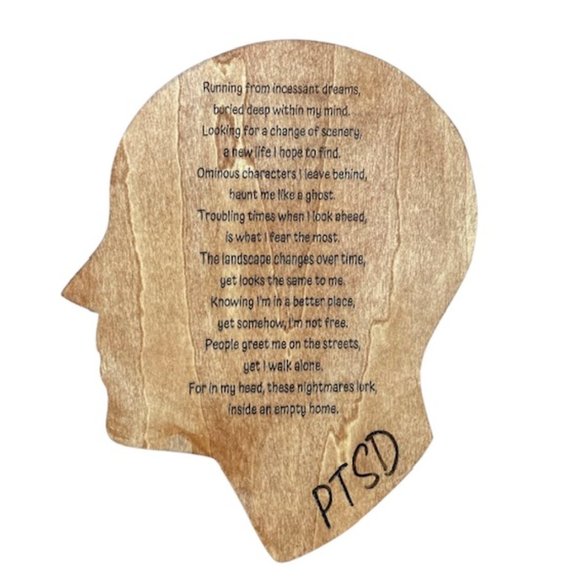 Running from incessant dreams,
buried deep within my mind.
Looking for a change of scenery,
a new life I hope to find.
Ominous characters I leave behind,
haunt me like a ghost.
Troubling times when I look ahead,
is what I fear the most.
The landscape changes over time,
yet looks the same to me.
Knowing I'm in a better place,
yet somehow, I'm not free.
People greet me on the streets,
yet I walk alone.
For in my head, these nightmares lurk,
inside an empty home.
PTSD